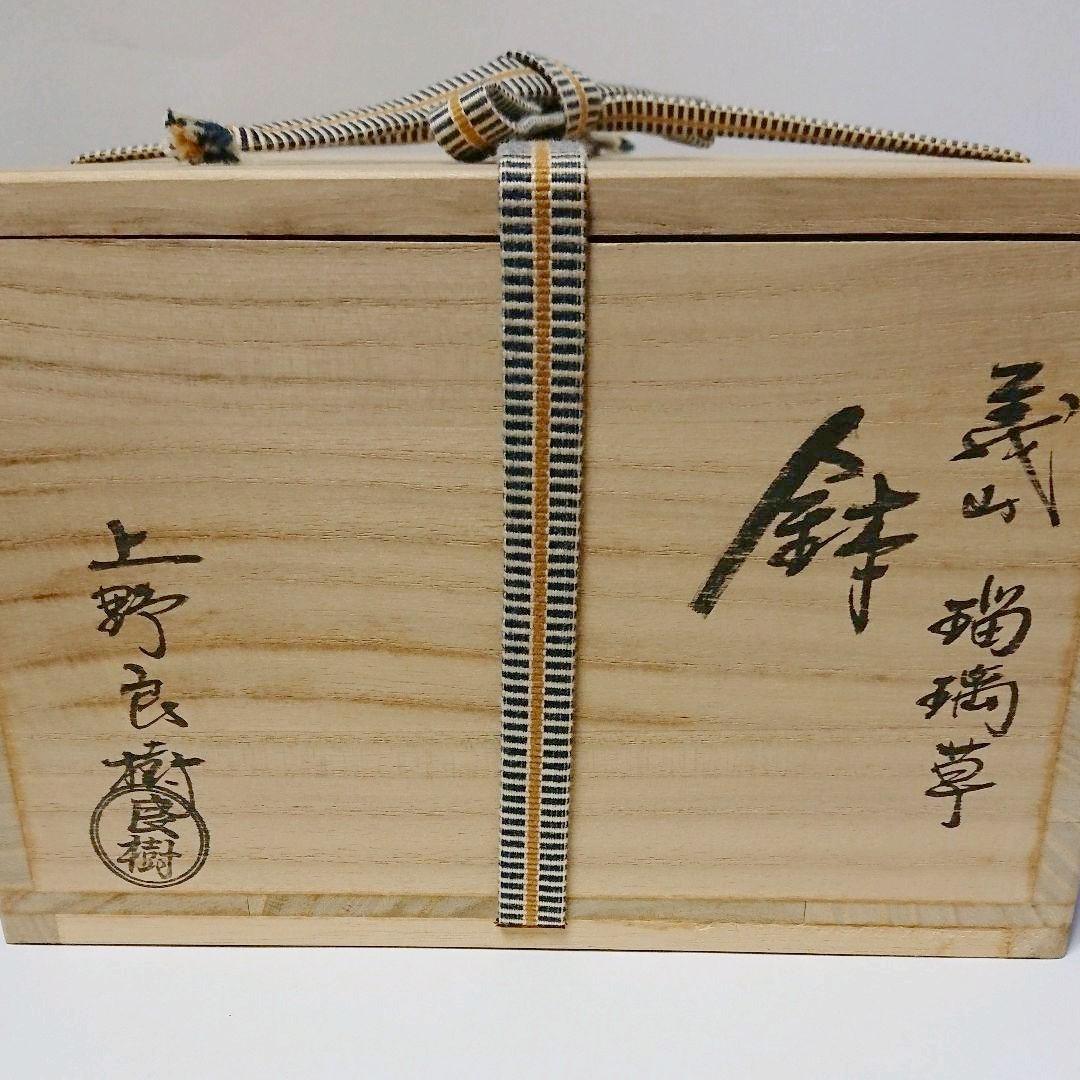 義山 瑠璃草
鉢
上野良樹
良樹